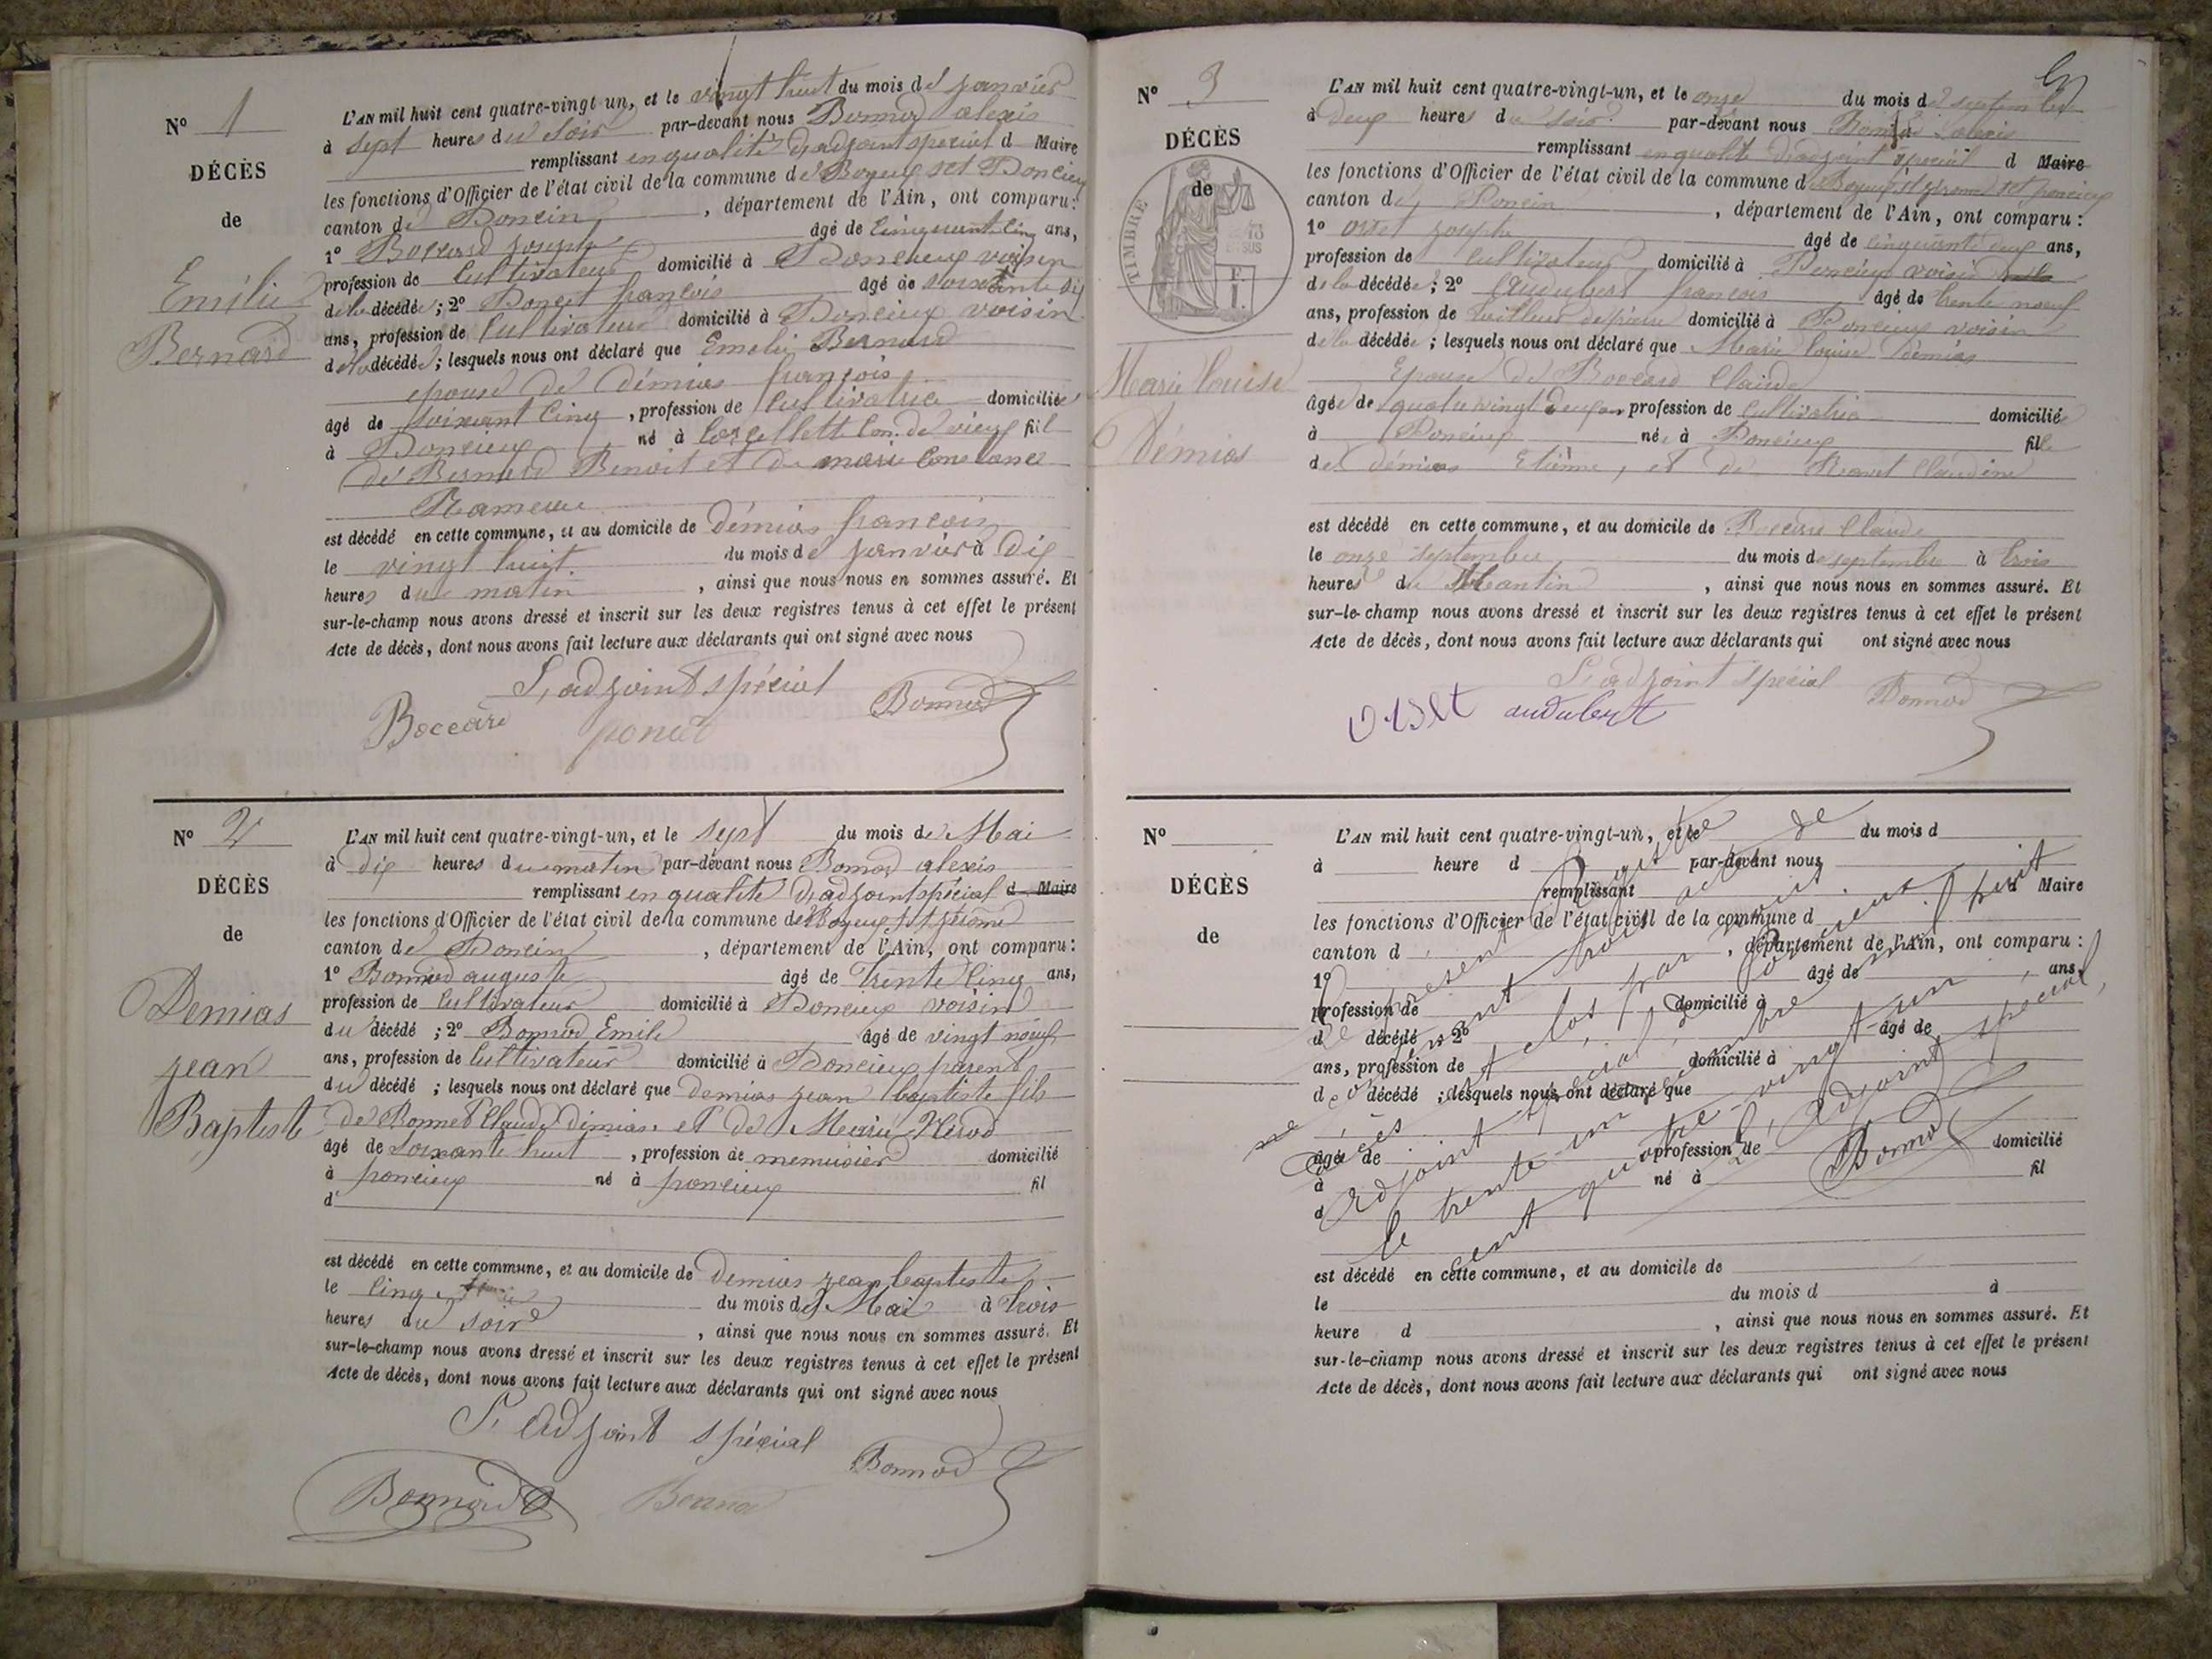 N° 1
DÉCÈS
de
Emélie
Bernard
L'AN mil huit cent quatre-vingt un, et le vingt huit du mois de janvier
à sept heures du soir par-devant nous Bonnod alexis
remplissant en qualité d'adjoint special d Maire
les fonctions d'Officier de l'état civil de la commune de Boyeux set Poncieux
canton de Poncin, département de l'Ain, ont comparu:
1° Boccard joseph âgé de cinquant cinq ans,
profession de cultivateur domicilié à Poncieux voisin
de la décédée; 2° Poncet françois âgé de soixante dix
ans, profession de cultivateur domicilié à Poncieux voisin
de la décédée; lesquels nous ont déclaré que Emelie Bernard
epouse de démias françois
âgé de soixant cinq, profession de cultivatrice domiciliée
à Poncieux né à Corcellette con. de vieux fil
de Bernard Benoit et de marie Constance
Rameau
est décédé en cette commune, et au domicile de démias françois
le vingt huit du mois de janvier à dix
heures du matin, ainsi que nous nous en sommes assuré. Et
sur-le-champ nous avons dressé et inscrit sur les deux registres tenus à cet effet le présent
Acte de décès, dont nous avons fait lecture aux déclarants qui ont signé avec nous
L'adjoint spécial
Boccard poncet Bonnod
N° 2
DÉCÈS
de
Demias
jean
Baptiste
L'AN mil huit cent quatre-vingt-un, et le sept du mois de Mai
à dix heures du matin par-devant nous Bonnod alexis
remplissant en qualité d'adjoint spécial d Maire
les fonctions d'Officier de l'état civil de la commune de Boyeux st jérome
canton de Poncin, département de l'Ain, ont comparu:
1° Bonnod auguste âgé de trente cinq ans,
profession de cultivateur domicilié à Poncieux voisin
du décédé; 2° Bonnod Emile âgé de vingt neuf
ans, profession de cultivateur domicilié à Poncieux parent
du décédé; lesquels nous ont déclaré que demias jean baptiste fils
de Bonnet Claude démias et de Marie Nerod
âgé de soixante huit, profession de menuisier domicilié
à poncieux né à poncieux fil
d
est décédé en cette commune, et au domicile de demias jean baptiste
le cinq du mois de Mai à trois
heures du soir, ainsi que nous nous en sommes assuré. Et
sur-le-champ nous avons dressé et inscrit sur les deux registres tenus à cet effet le présent
Acte de décès, dont nous avons fait lecture aux déclarants qui ont signé avec nous
L'adjoint spécial
Bonnod
Bonnod
N° 3
DÉCÈS
de
TIMBRE
Marie Louise
Démias
L'AN mil huit cent quatre-vingt-un, et le onze du mois de septembre
à deux heures du soir par-devant nous Bonnod alexis
remplissant en qualité d'adjoint spécial d Maire
les fonctions d'Officier de l'état civil de la commune de Boyeux st jérome set poncieux
canton de Poncin, département de l'Ain, ont comparu:
1° orset joseph âgé de cinquante deux ans,
profession de cultivateur domicilié à Poncieux voisin
de la décédée; 2° Audubert françois âgé de trente neuf
ans, profession de tailleur de pierre domicilié à Poncieux voisin
de la décédée; lesquels nous ont déclaré que Marie Louise Démias
Epouse de Boccard Claude
âgée de quatre vingt deux an profession de cultivatrice domicilié
à Poncieux née à Poncieux fille
de démias Etienne, et de Ravet Claudine
est décédé en cette commune, et au domicile de Boccard Claude
le onze septembre du mois de septembre à trois
heures du Mantin, ainsi que nous nous en sommes assuré. Et
sur-le-champ nous avons dressé et inscrit sur les deux registres tenus à cet effet le présent
Acte de décès, dont nous avons fait lecture aux déclarants qui ont signé avec nous
L'adjoint spécial
orset audubert Bonnod
N°
DÉCÈS
de
L'AN mil huit cent quatre-vingt-un, et le du mois d
à heure d par-devant nous
remplissant d Maire
les fonctions d'Officier de l'état civil de la commune d
canton d, département de l'Ain, ont comparu:
1° âgé de ans,
profession de domicilié à
d décédé; 2° âgé de
ans, profession de domicilié à
d décédé; lesquels nous ont déclaré que
âgé de profession de domicilié
à né à fil
d
est décédé en cette commune, et au domicile de
le du mois d à
heure d, ainsi que nous nous en sommes assuré. Et
sur-le-champ nous avons dressé et inscrit sur les deux registres tenus à cet effet le présent
Acte de décès, dont nous avons fait lecture aux déclarants qui ont signé avec nous
Le présent Registre de
contenant trois actes de
décès est clos par nous
adjoint spécial de Poncieux
le trente un décembre mil huit
cent quatre-vingt un
L'adjoint spécial,
Bonnod